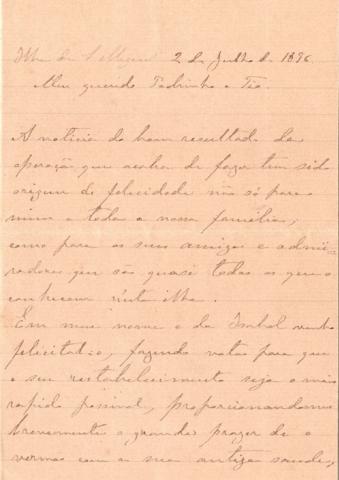 Ilha de S. Miguel 2 de Julho de 1896
Meu querido Padrinho e Tio.
A noticia do bom resultado da
operação que acaba de fazer tem sido
origem de felicidade não só para
mim e toda a nossa familia,
como para os seus amigos e admi-
radores que são quasi todos os que o
conhecem n'esta ilha.
Em meu nome e da Isabel venho
felicital-o, fazendo votos para que
o seu restabelecimento seja o mais
rapido possivel, proporcionando-nos
brevemente o grande prazer de o
vermos com a sua antiga saude,